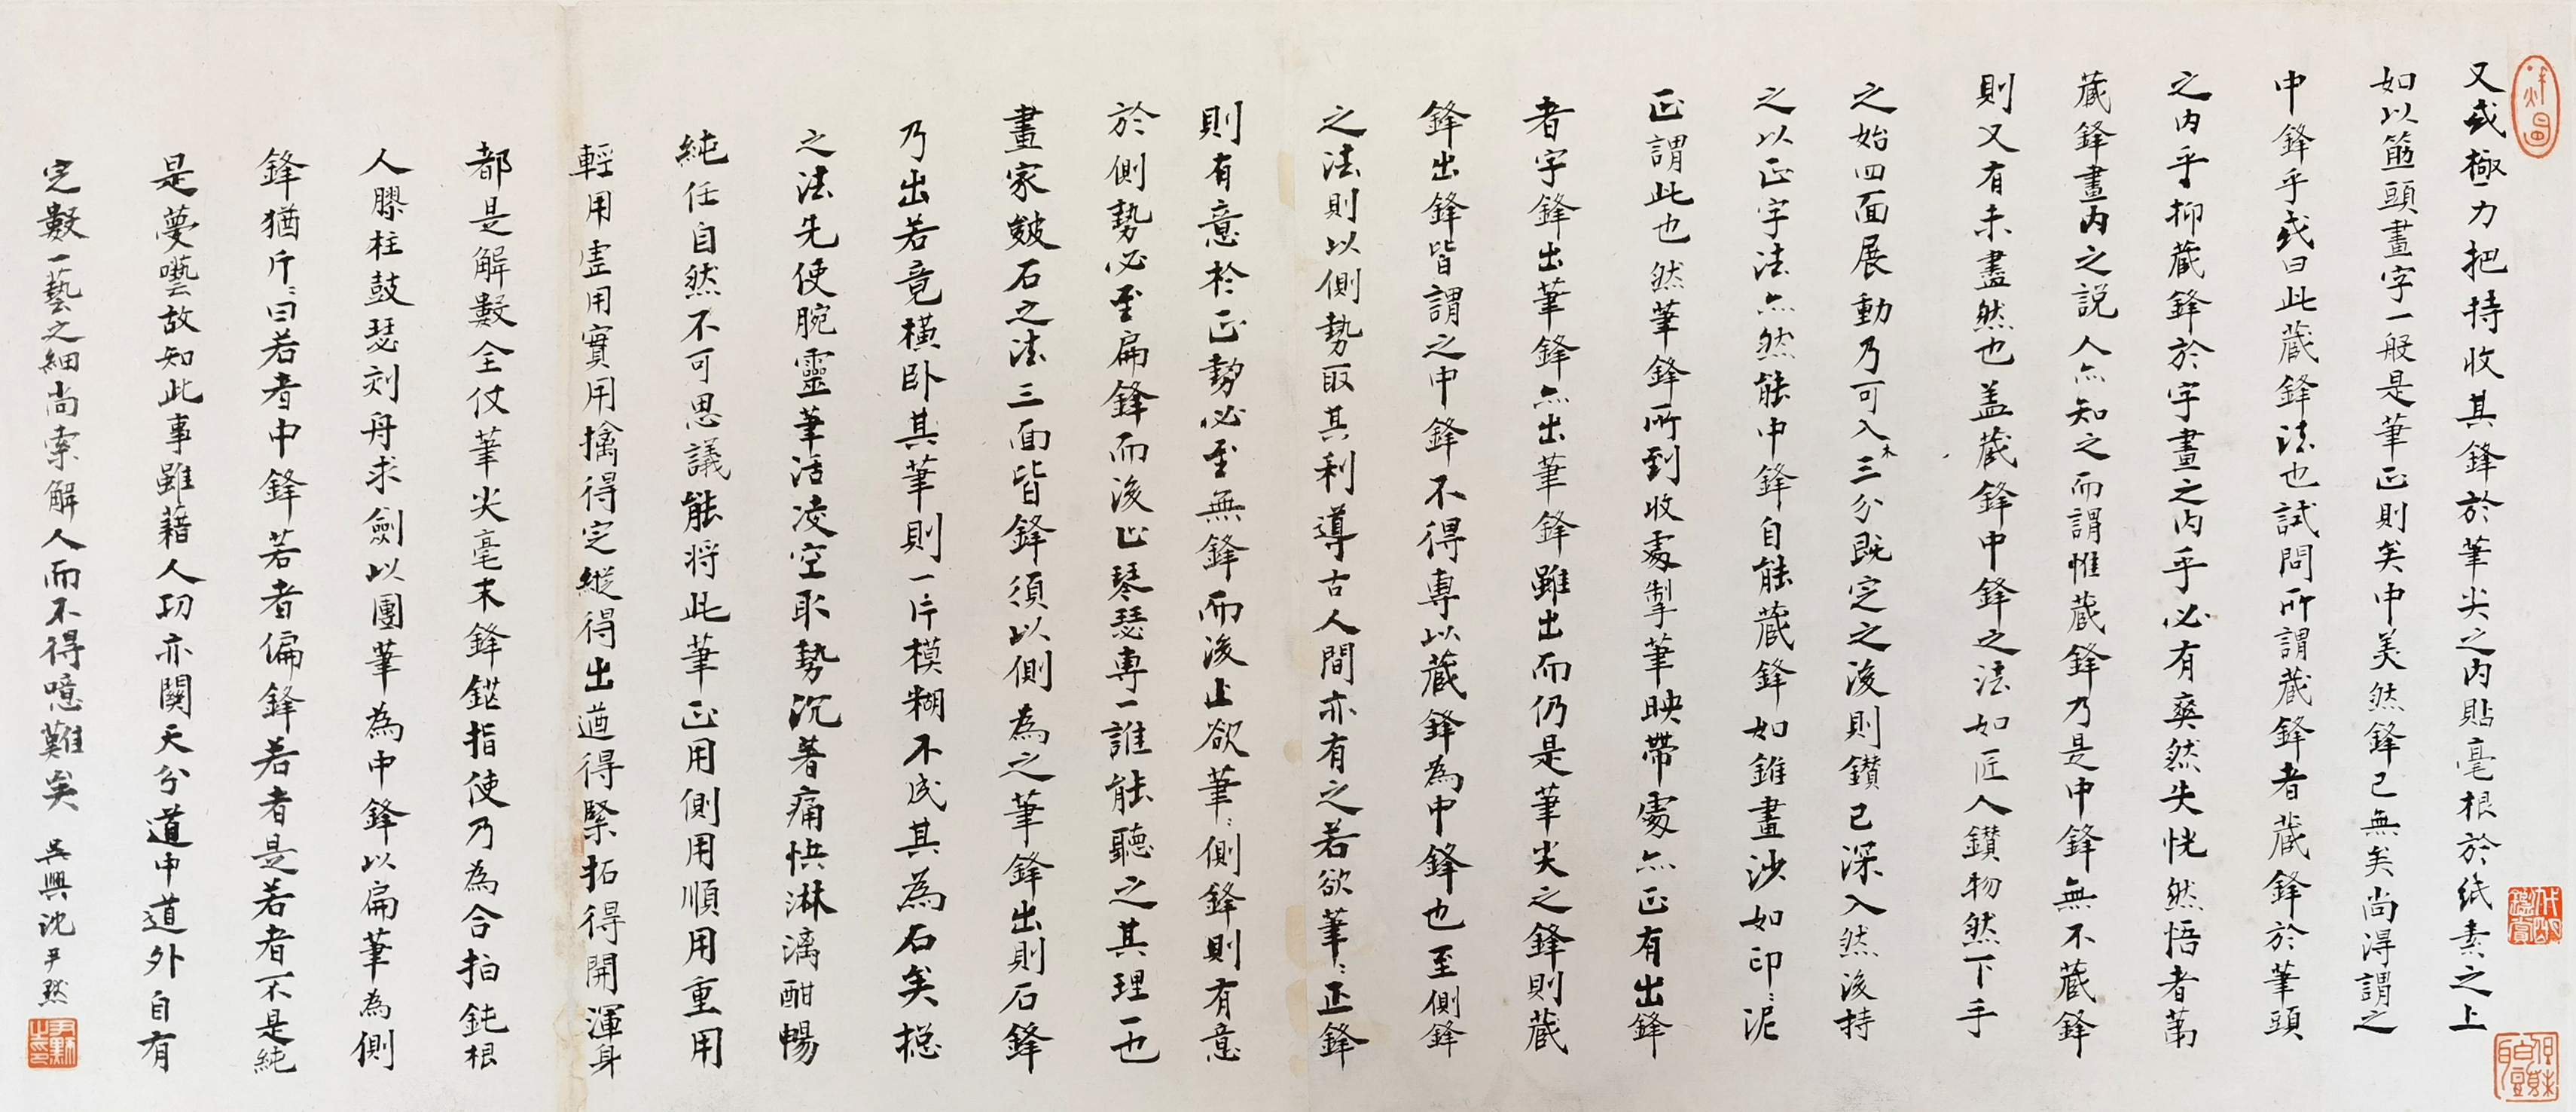 又或極力把持收其鋒於筆尖之內貼毫根於紙素之上
如以筯頭畫字一般是筆正則矣中美然鋒已無矣尚淂謂之
中鋒乎或曰此蔵鋒法也試問所謂蔵鋒者蔵鋒於筆頭
之内乎抑蔵鋒於字畫之内乎必有爽然失恍然悟者苐
蔵鋒畫内之説人亦知之而謂惟蔵鋒乃是中鋒無不蔵鋒
則又有未盡然也盖蔵鋒中鋒之法如匠人鑚物然下手
之始四面展動乃可入木三分既定之後則鑚已深入然後持
之以正字法亦然能中鋒自能蔵鋒如錐畫沙如印〻泥
正謂此也然筆鋒所到收處掣筆映帶處亦正有出鋒
者字鋒出筆鋒亦出筆鋒雖出而仍是筆尖之鋒則蔵
鋒出鋒皆謂之中鋒不得専以蔵鋒為中鋒也至側鋒
之法則以側勢取其利導古人間亦有之若欲筆〻正鋒
則有意於正勢必至無鋒而後止欲筆〻側鋒則有意
於側勢必至扁鋒而後止琴瑟専一誰能聽之其理一也
畫家皴石之法三面皆鋒須以側為之筆鋒出則石鋒
乃出若竟橫卧其筆則一片模糊不成其為石矣揔
之法先使腕靈筆活凌空取勢沉著痛快淋漓酣暢
純任自然不可思議能将此筆正用側用順用重用
輕用虛用實用擒得定縱得出遒得緊拓得開渾身
都是解數全仗筆尖毫末鋒鋩指使乃為合拍鈍根
人膠柱鼓瑟刻舟求劍以團筆為中鋒以扁筆為側
鋒猶斤〻曰若者中鋒若者偏鋒若者是若者不是純
是夢囈故知此事雖藉人功亦關天分道中道外自有
定數一藝之細尚索解人而不得噫難矣 吳興沈尹默